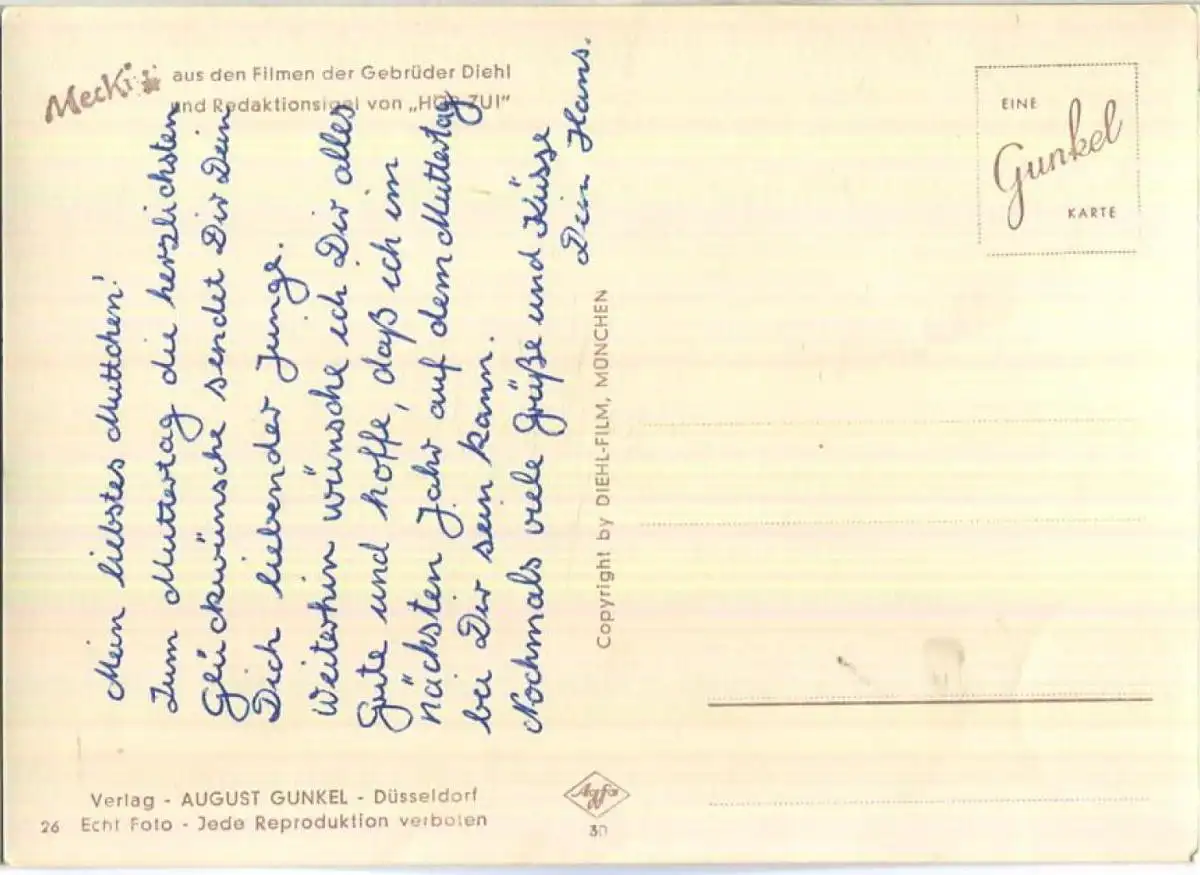 Mecki aus den Filmen der Gebrüder Diehl
und Redaktionsigel von „HÖR ZU!"
Mein liebstes Muttchen!
Zum Muttertag die herzlichsten
Glückwünsche sendet Dir Dein
Dich liebender Junge.
Weiterhin wünsche ich Dir alles
Gute und hoffe, daß ich im
nächsten Jahr auf dem Muttertag
bei Dir sein kann.
Nochmals viele Grüße und Küsse
Dein Hans.
Copyright by DIEHL-FILM, MÜNCHEN
EINE
Gunkel
KARTE
Verlag - AUGUST GUNKEL - Düsseldorf
26 Echt Foto - Jede Reproduktion verboten
Agfa
30